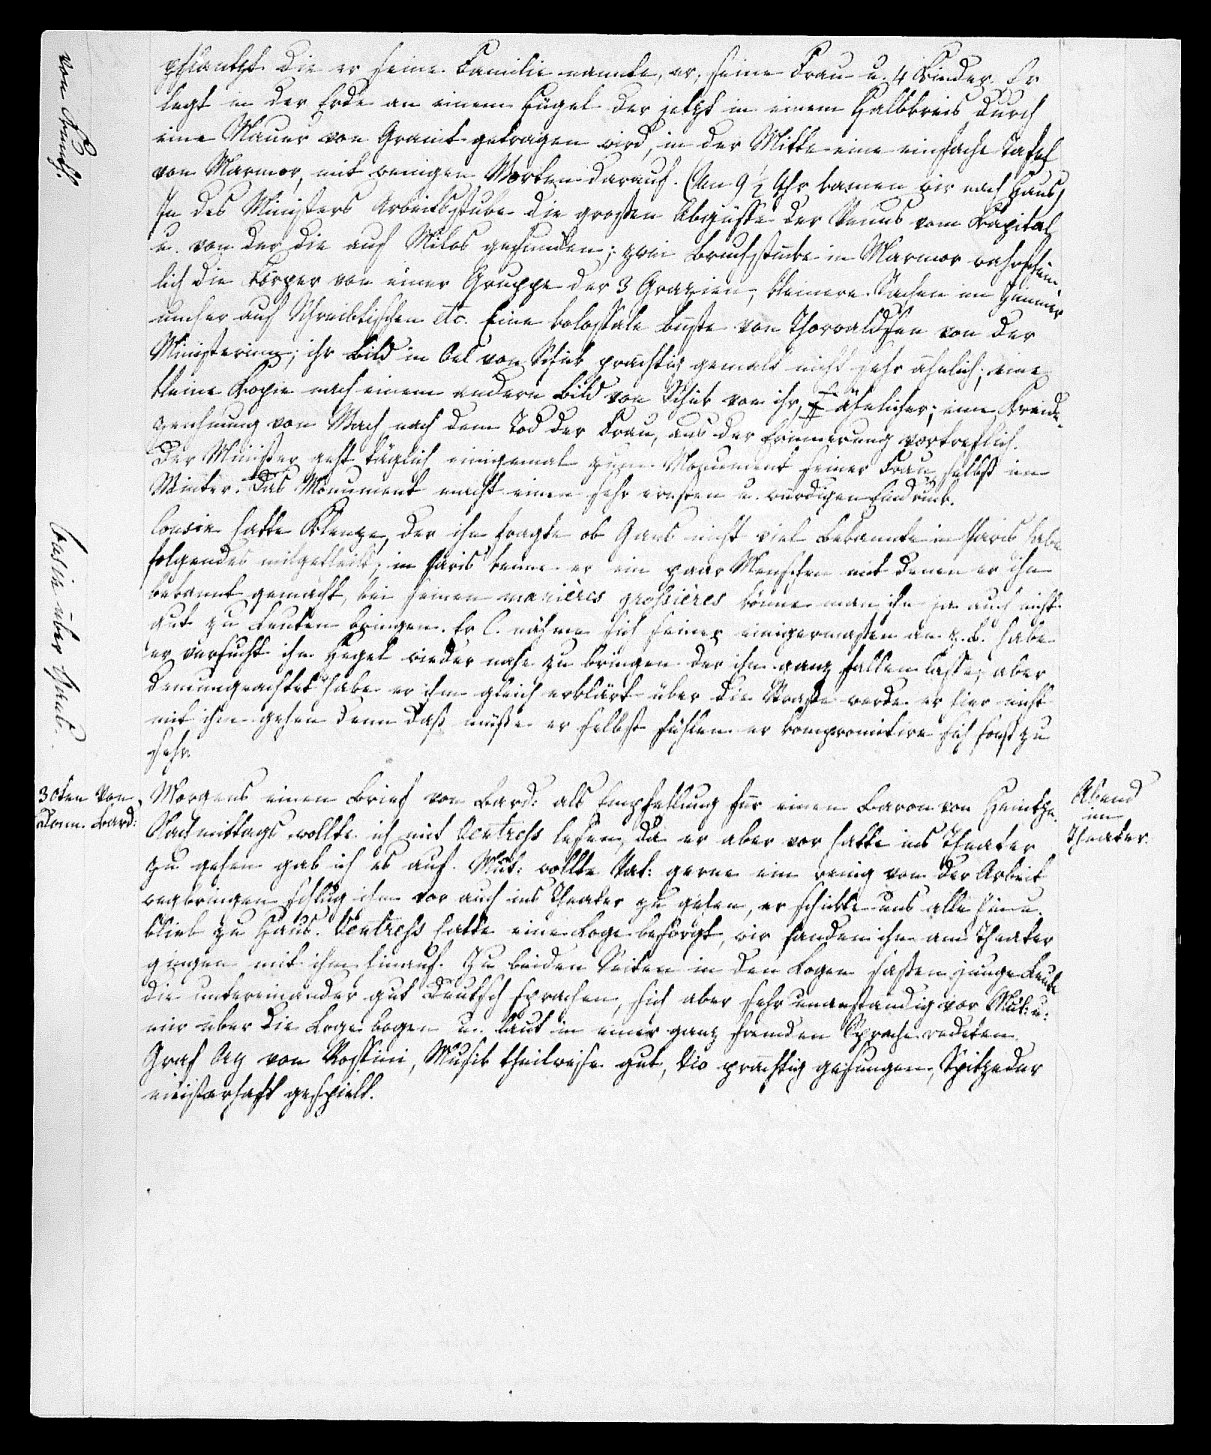 pflantzt die er seine Familie nannte, er, seine Frau u. 4 Kinder. Er
legt in der Erde an einem Hügel der jetzt in einem Halbkreis durch
eine Mauer von Granit getragen wird, in der Mitte eine einfache Tafel
von Marmor, mit wenigen Worten darauf. (Um 9 ½ Uhr kamen wir nach Haus)
In des Ministers Arbeitsstube die großen Abgüsse der Venus vom Kapitol
u. von der die auf Milos gefunden; zwei Bruchstücke in Marmor wahrschein-
lich die Körper von einer Gruppe der 3 Grazien, kleinere Sachen im Zimmer
umher auf Schreibtischen etc. Eine kolossale Büste von Thorwaldsen von der
Ministerinn; ihr Bild in Oel von Schik prächtig gemalt nicht sehr ähnlich; eine
kleine Kopie nach einem andern Bild von Schik von ihr, ähnlicher; eine Kreide-
zeichnung von Wach nach dem Tod der Frau, aus der Erinnerung vortreflich.
Der Minister geht täglich einigemal zum Monument seiner Frau, selbst im
Winter. Das Monument macht einen sehr ernsten u. würdigen Eindruck.
Cousin hatte Klenze, der ihn fragte ob Gans nicht viel Bekannte in Paris habe
folgendes mitgetheilt; in Paris kenne er ein paar Menschen mit denen er ihn
bekannt gemacht, bei seinen manières grossières könne man ihn ja auch nicht
gut zu Leuten bringen. Er C. nähme sich seiner einigermaßen an z.B. habe
er versucht ihn Hegel wieder nahe zu bringen der ihn ganz fallen lasse, aber
demungeachtet habe er ihm gleich erklärt über die Straße werde er hier nicht
mit ihm gehen denn daß müßte er selbst fühlen er kompromitire sich sonst zu
sehr.
30ten Von
Morgens einen Brief von Bard: als Empfehlung für einen Baron von
Abend
Nachmittags wollte ich mit Ventress lesen, da er aber vor hatte ins Theater
im
Theater.
zu gehen gab ich es auf. Mut: wollte Vat: gerne ein wenig von der Arbeit
wegbringen schlug ihm vor auch ins Theater zu gehen, er schickte uns alle hin u.
blieb zu Haus. Ventress hatte eine Loge besorgt, wir fanden ihn am Theater
gingen mit ihm hinauf. Zu beiden Seiten in den Logen saßen junge Leute
die untereinander gut Deutsch sprachen, sich aber sehr unanständig vor Mut: u.
mir über die Loge bogen u. laut in einer ganz fremden Sprache redeten.
Graf Ory von Rossini, Musik theilweise gut, Vio prächtig gesungen, Spitzeder
meisterhaft gespielt.